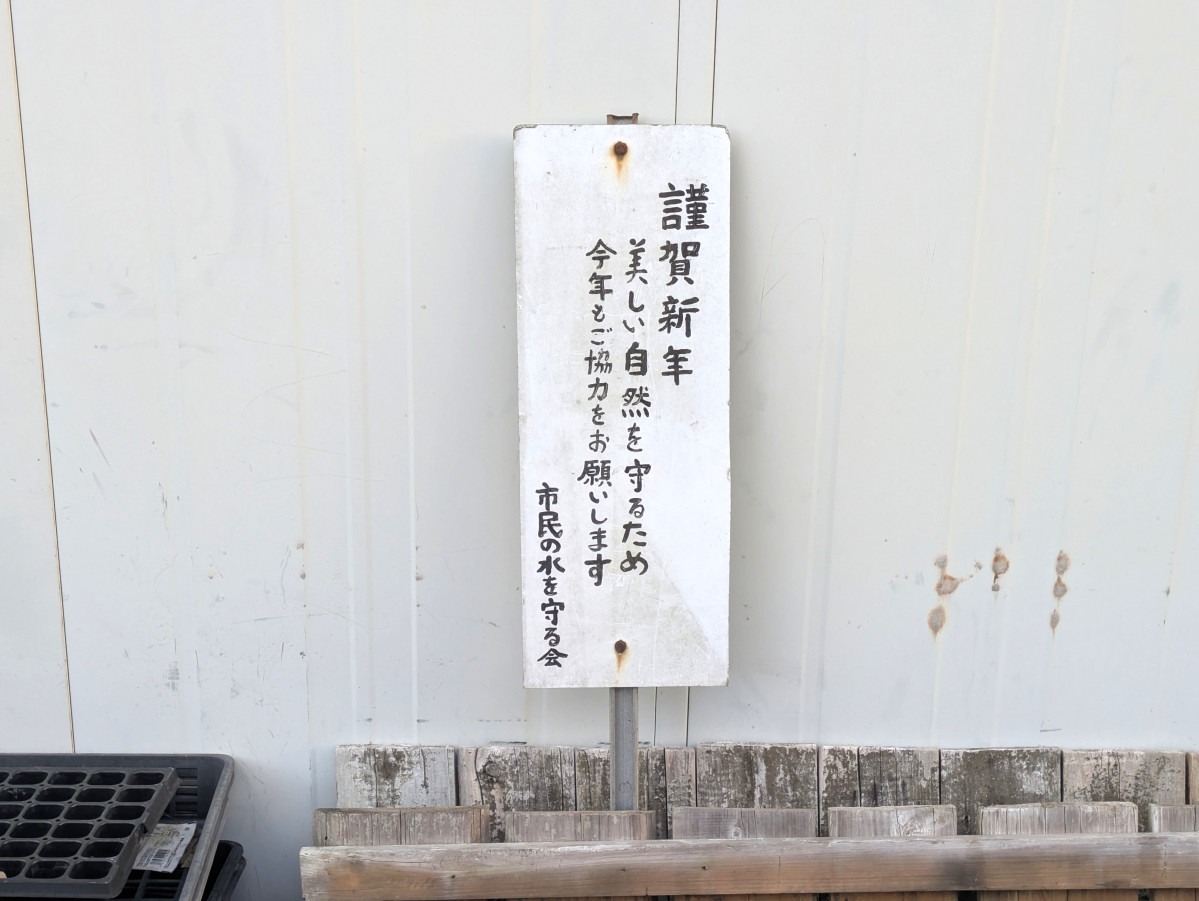 謹賀新年
美しい自然を守るため
今年もご協力をお願いします
市民の水を守る会